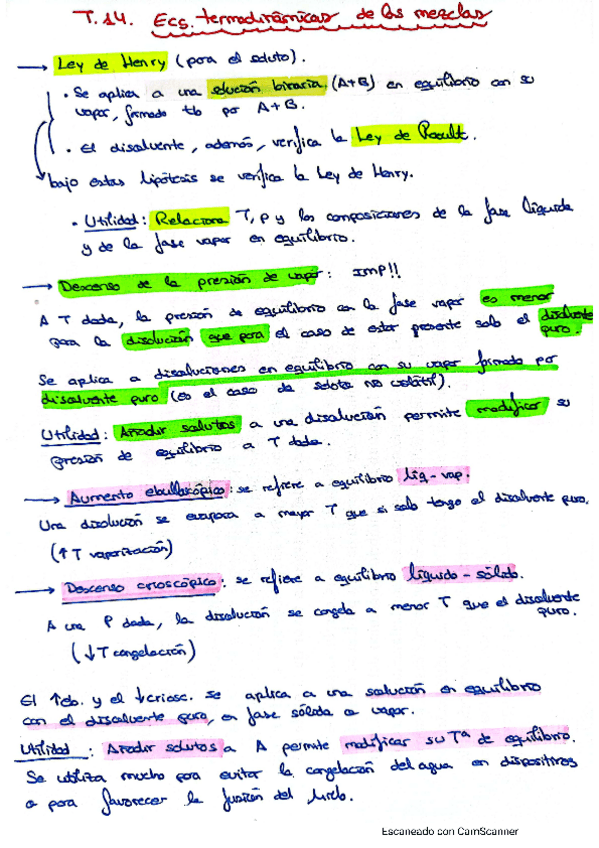 T.14. Ecs. termodinámicas de las mezclas
→ Ley de Henry (para el soluto).
• Se aplica a una solución binaria (A+B) en equilibrio con su
vapor, formado tb por A+B.
• El disolvente, además, verifica la Ley de Raoult.
bajo estas hipótesis se verifica la Ley de Henry.
• Utilidad: Relaciona T, p y las composiciones de la fase líquida
y de la fase vapor en equilibrio.
→ Descenso de la presión de vapor: IMP!!
A T dada, la presión de equilibrio con la fase vapor es menor
para la disolución que para el caso de estar presente solo el disolvente
puro.
Se aplica a disoluciones en equilibrio con su vapor formado por
disolvente puro (es el caso de soluto no volátil).
Utilidad: Añadir solutos a una disolución permite modificar su
presión de equilibrio a T dada.
→ Aumento ebulloscópico: se refiere a equilibrio líq-vap.
Una disolución se evapora a mayor T que si solo tengo el disolvente puro.
(↑T vaporización)
→ Descenso crioscópico: se refiere a equilibrio líquido-sólido.
A una P dada, la disolución se congela a menor T que el disolvente
puro.
(↓T congelación)
El ↑eb. y el ↓criosc. se aplica a una solución en equilibrio
con el disolvente puro, en fase sólida o vapor.
Utilidad: Añadir solutos a A permite modificar su Tª de equilibrio.
Se utiliza mucho para evitar la congelación del agua en dispositivos
o para favorecer la fusión del hielo.
Escaneado con CamScanner